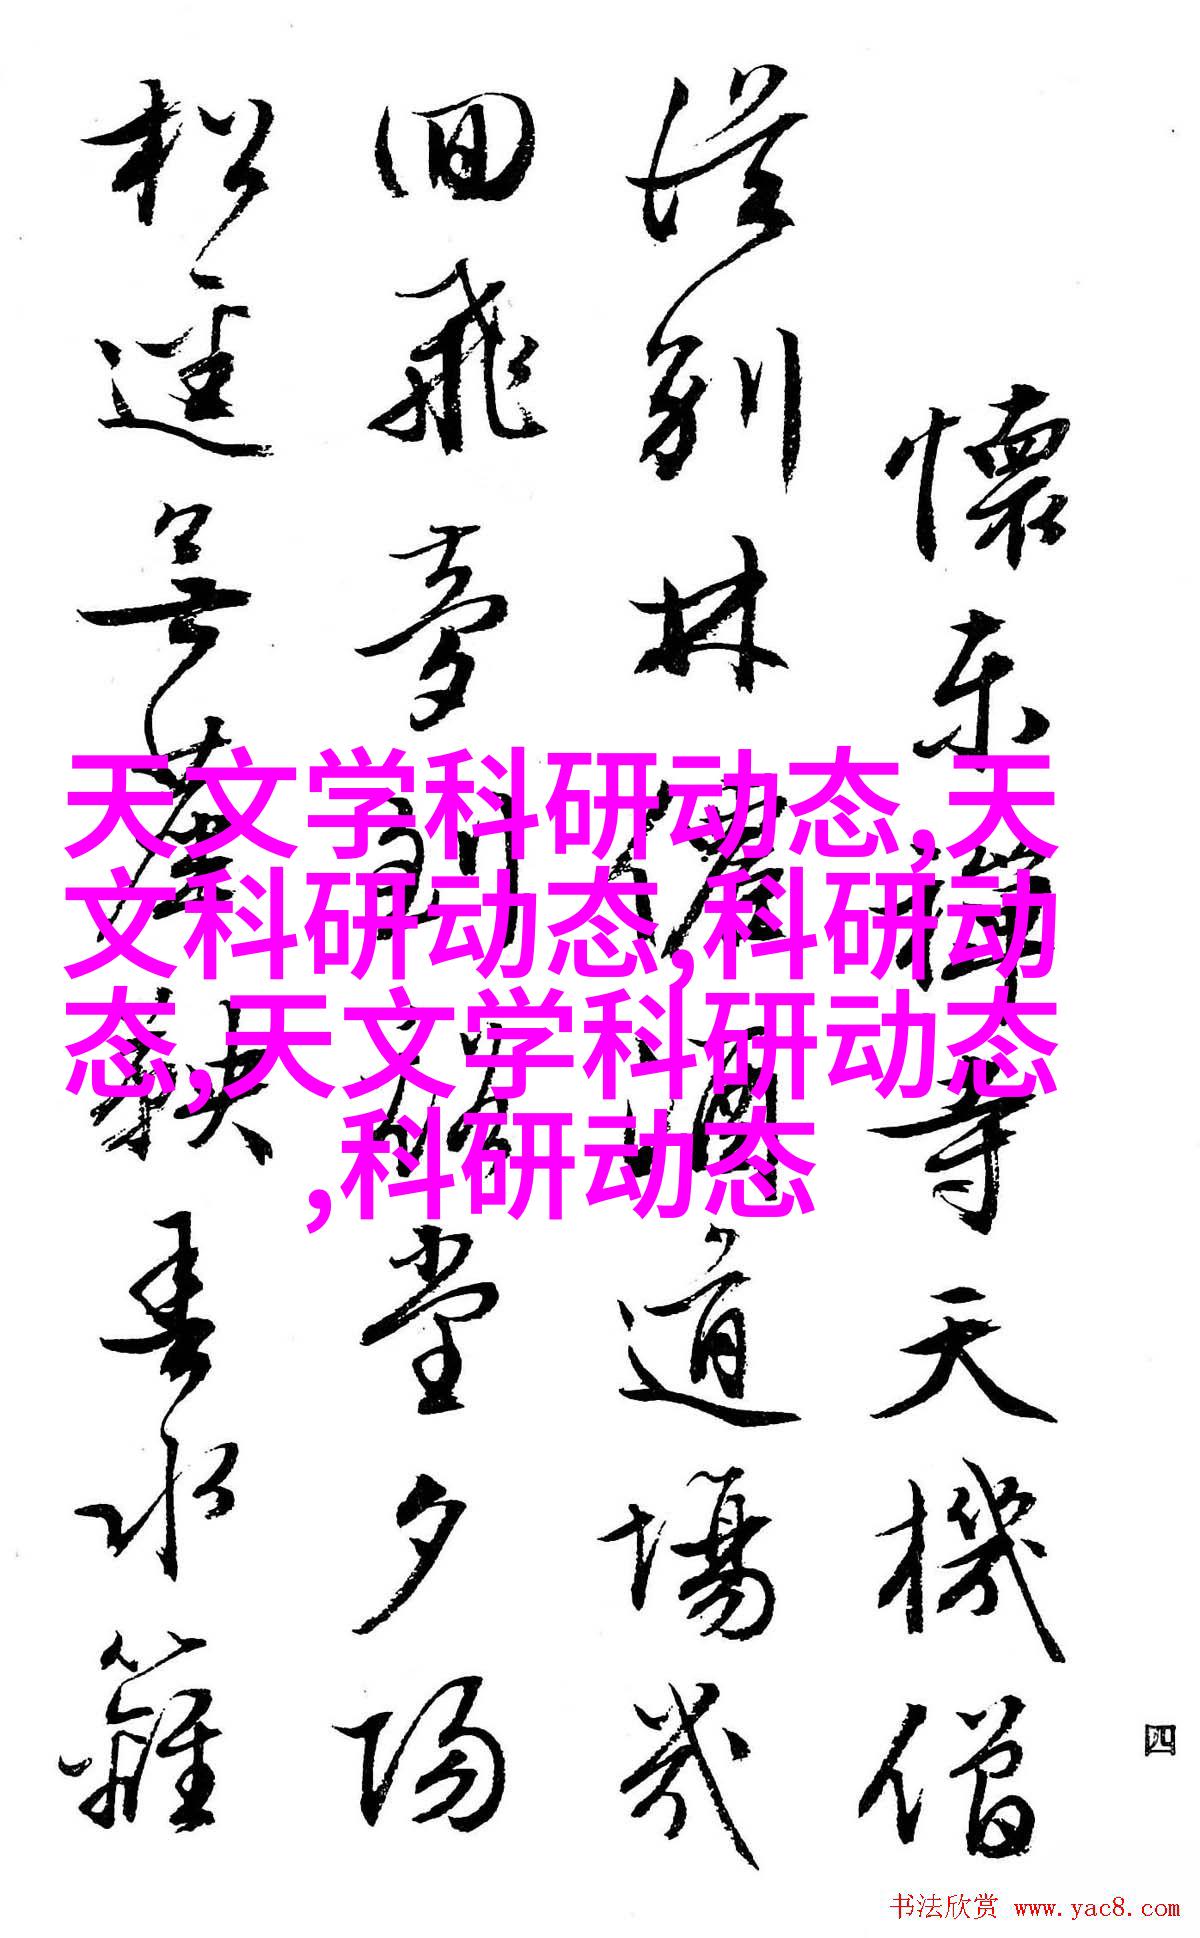 懷東禪寺天機僧
從別林僧酒道場幾
回飛夢到堂夕陽
松迳無塵軼春水籬
天文学科研动态,天
文科研动态,科研动
态,天文学科研动态
,科研动态
四
书法欣赏 www.yac8.com